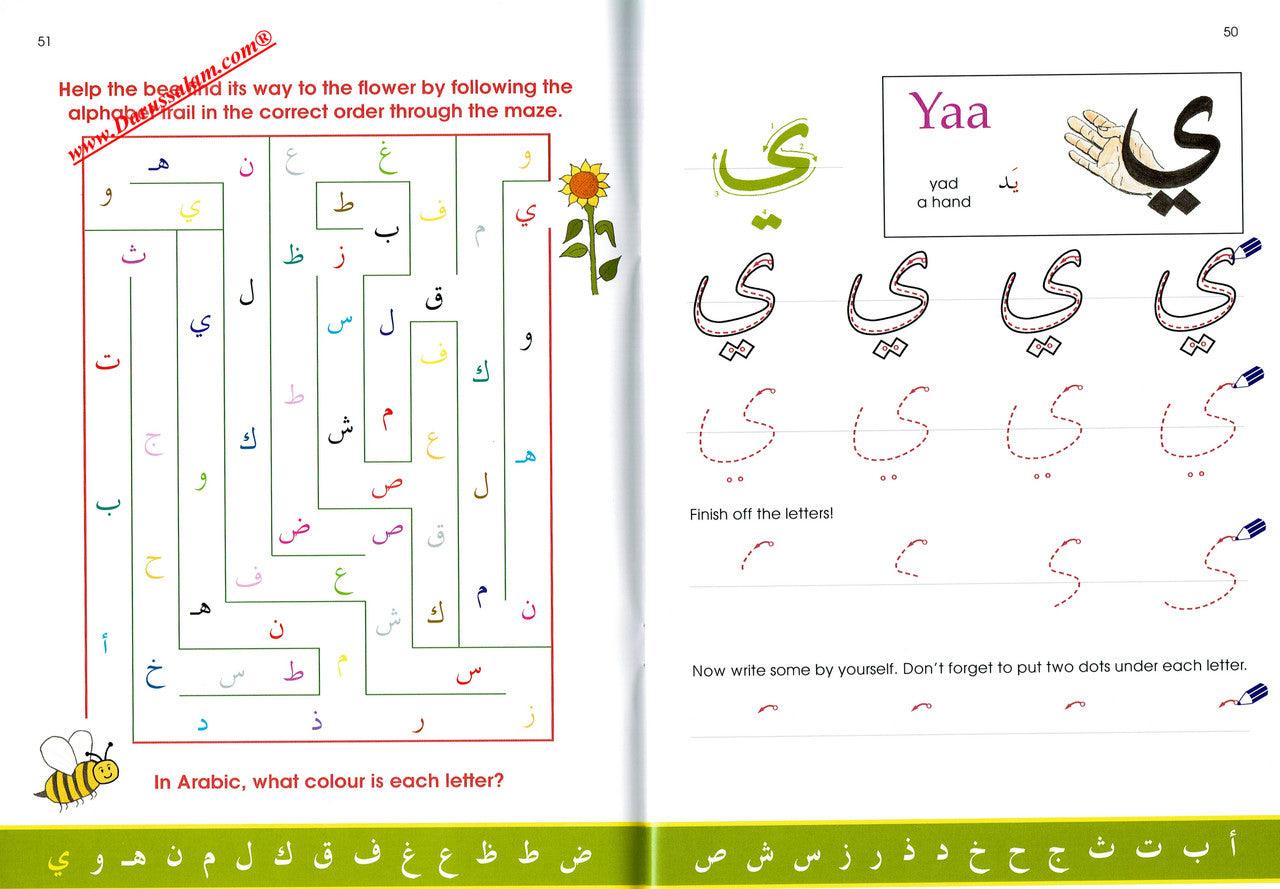 51
www.Darussalam.com®
Help the bee find its way to the flower by following the
alphabet trail in the correct order through the maze.
و غ ع ن هـ
ي ف ط ي و
م ب ز ظ ث
ق ل
و ل س ي
ك ف ت
م ط
هـ ع ش ك ج
ل ص و
ب
ق ص ض
ع ف ح
ن م ك ش هـ
ن أ
س م ط س خ
ز ر ذ د
In Arabic, what colour is each letter?
ض ط ظ ع غ ف ق ك ل م ن هـ و ي
50
ي
1 2 3 4
Yaa
ي
yad يَد
a hand
ي ي ي ي
ي ي ي ي
Finish off the letters!
Now write some by yourself. Don't forget to put two dots under each letter.
أ ب ت ث ج ح خ د ذ ر ز س ش ص